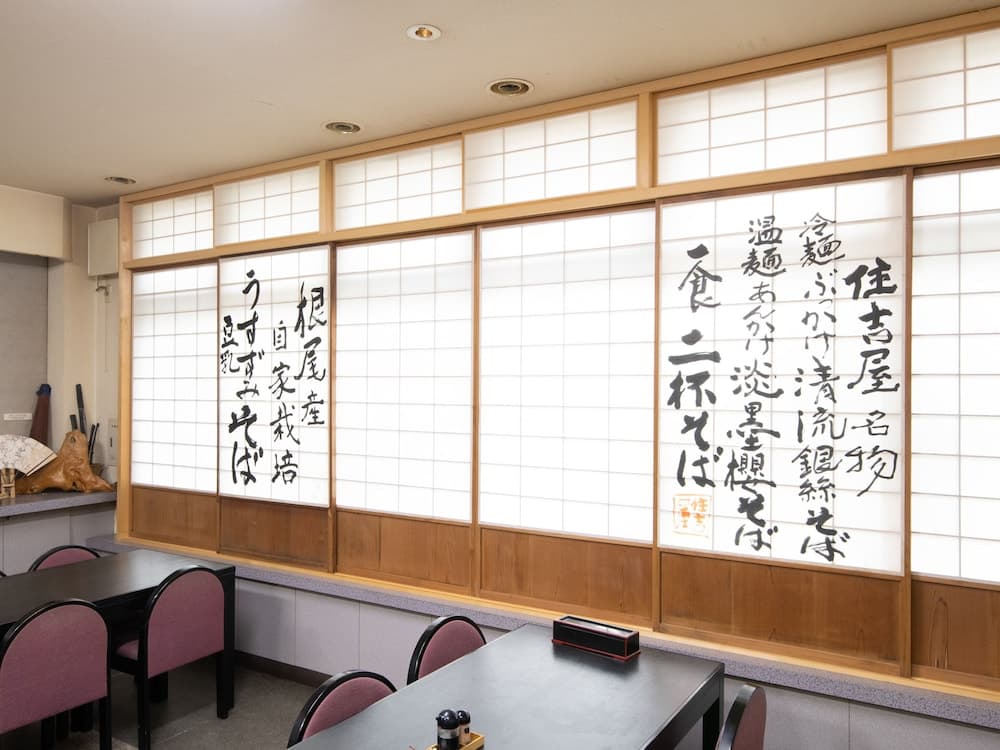 住吉屋名物
冷麺ぶっかけ清流銀絲そば
温麺あんかけ淡墨櫻そば
一食二杯そば
住吉
根尾産
自家栽培
うすずみそば
豆乳